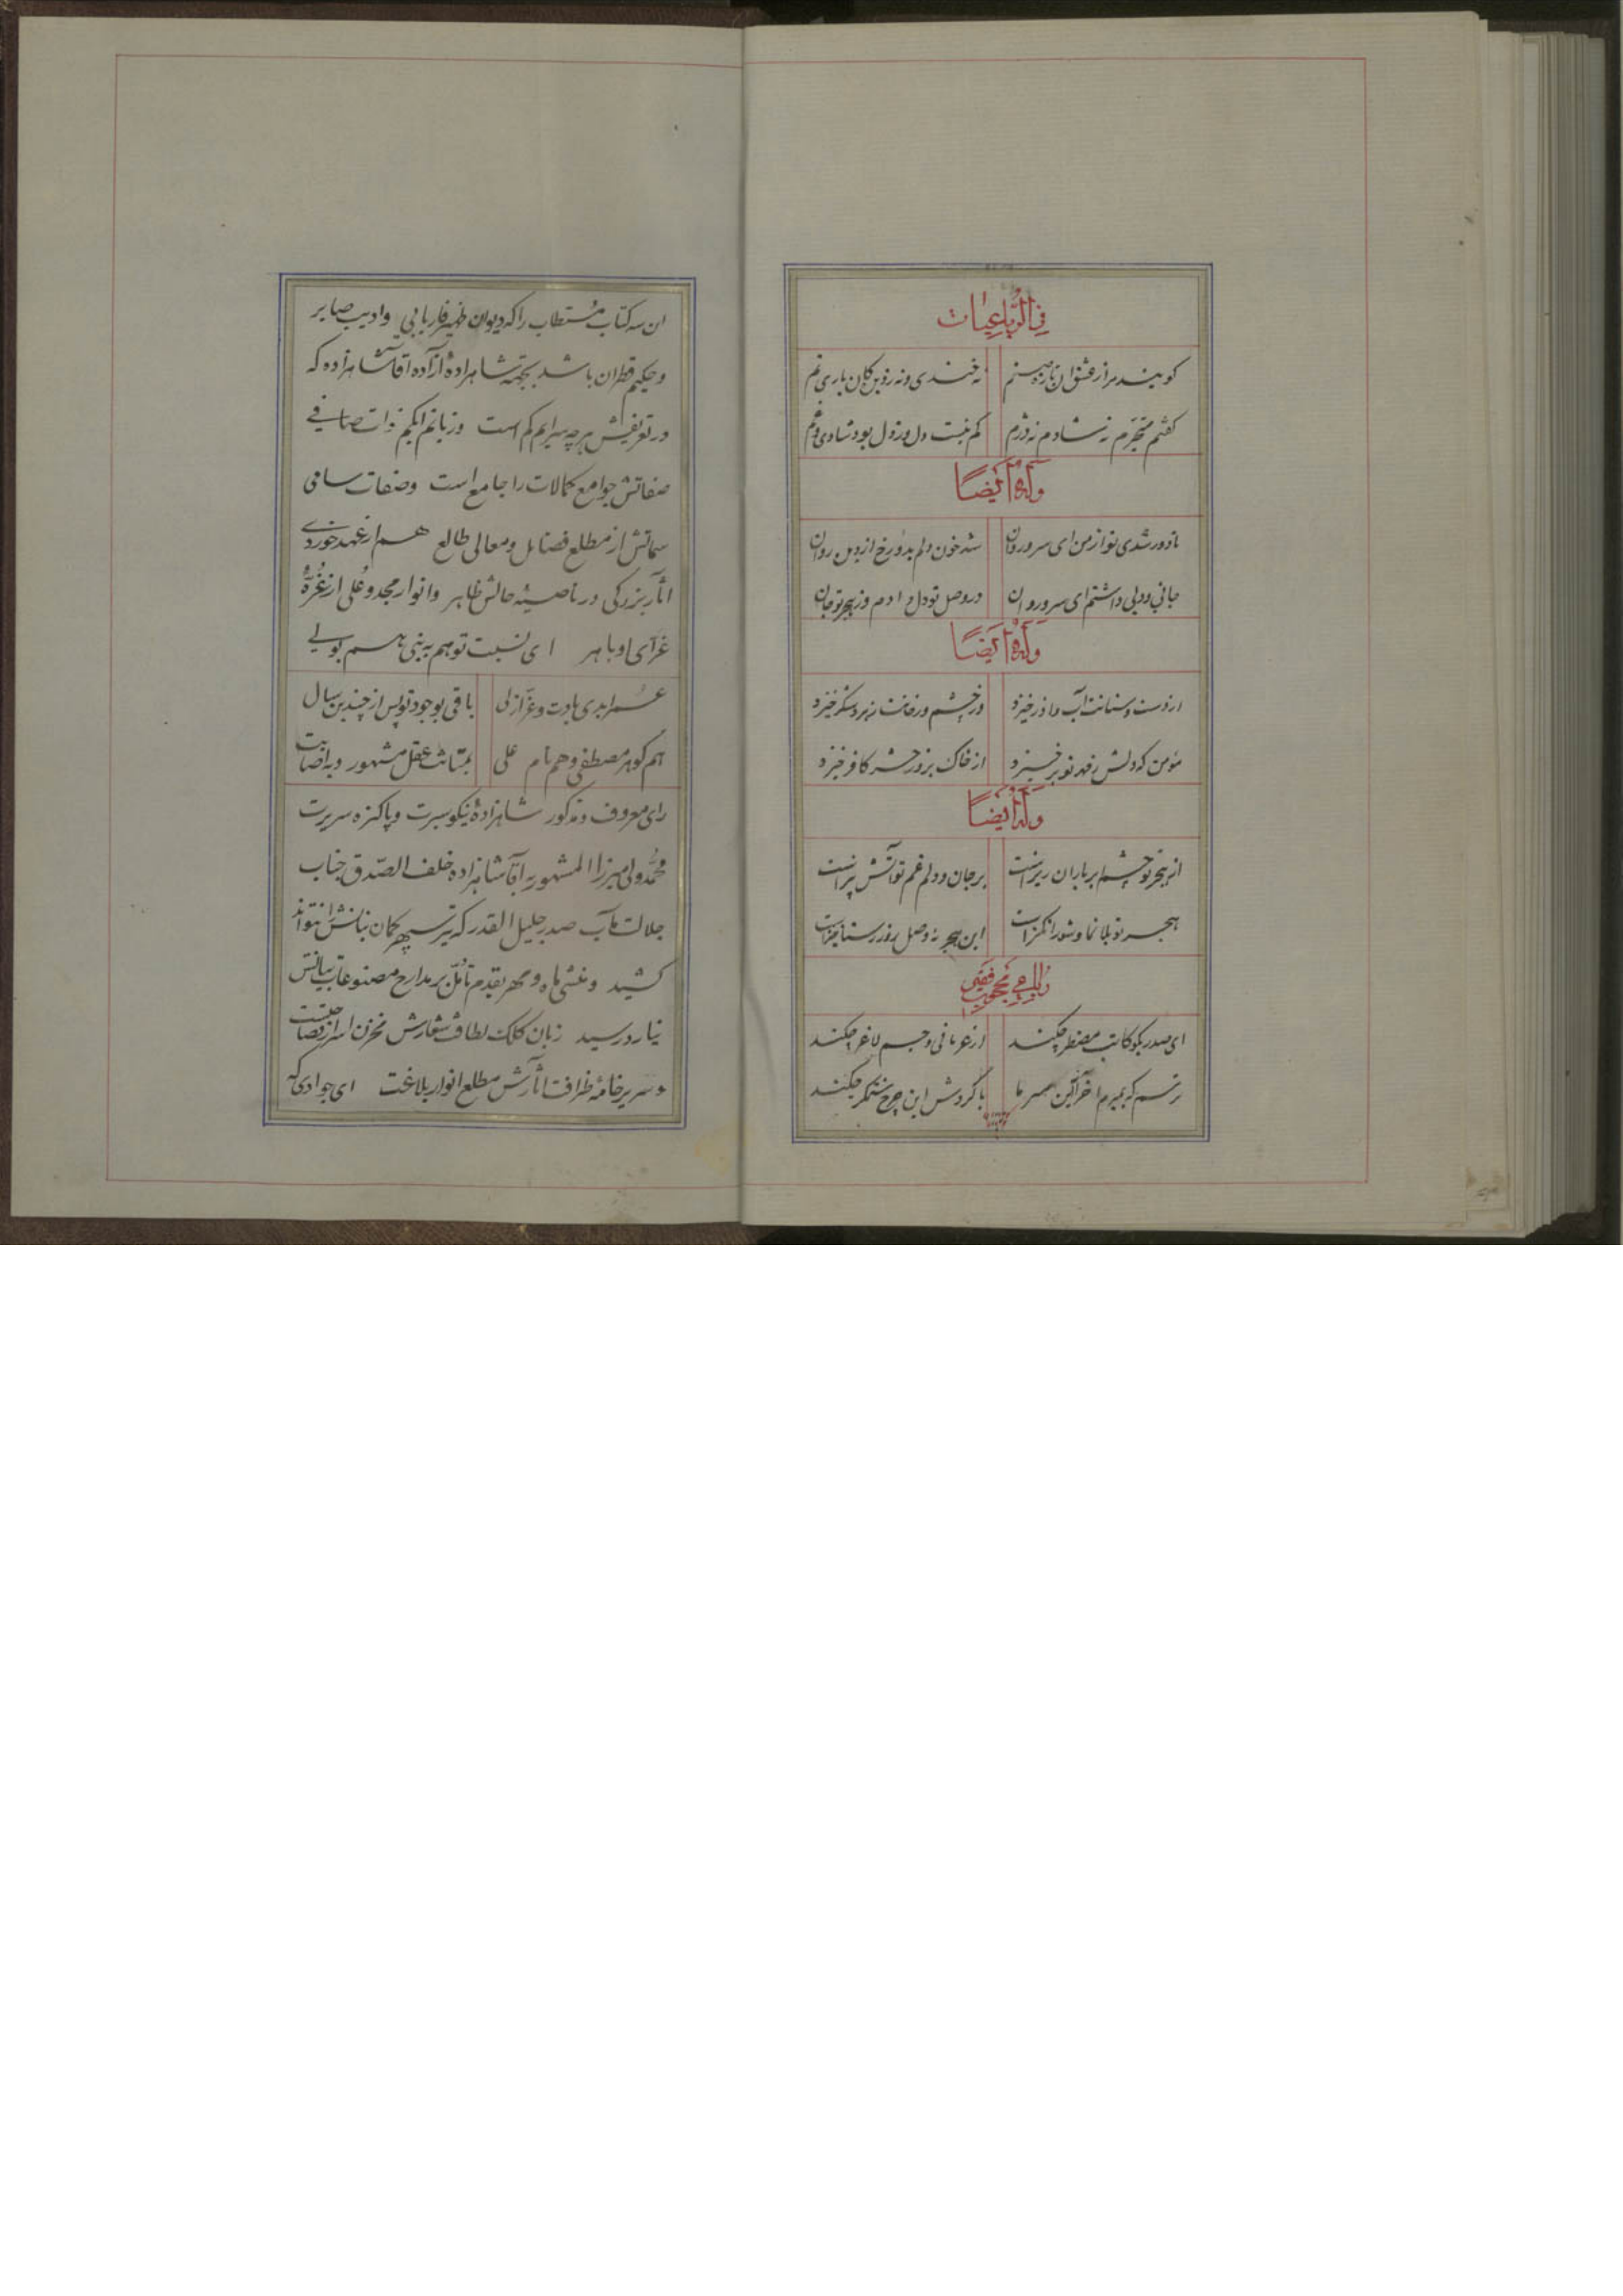 فی الرباعیات
کویند مرا ز عشق آن صنم نه خندی و نه
کفتم متحیرم نه شادم نه دژم کم نیست دل و ز دل بود شادی و غم
وله ایضا
تا دور شدی تو از من ای سرو روان شد خون دلم بدو رخ از دیده روان
جانی و دلی داشتم ای سرو روان در وصل تو دل دادم و ز هجر تو جان
وله ایضا
از دست و سنانت آب و آذر خیزد وز خشم و رضات زهر و شکر خیزد
مؤمن که دلش ز عهد تو برخیزد از خاک بروز حشر کافر خیزد
وله ایضا
از هجر تو چشمم ابر باران ریز است بر جان و دلم غم تو آتش بیز است
هجر تو بلا نما و شور انگیز است این هجر نه وصل روز رستاخیز است
ای صدر بکو کاتب مضطر چکند از عریانی و جسم لاغر چکند
ترسم که بمیرم آخر این سرما با کردش این چرخ ستمکر چکند
ان سه کتاب مستطاب را که دیوان ظهیر فاریابی و ادیب صابر
و حکیم قطران باشد بجهة شاهزادهٔ آزاده اقا شاهزاده که
در تعریفش هر چه سرایم کم است و زبانم ابکم ذات صافی
صفاتش جوامع کمالات را جامع است و صفات سامی
سماتش از مطلع فضایل و معالی طالع هم از عهد خوردی
آثار بزرکی در ناصیهٔ حالش ظاهر و انوار مجد و علی از غرّهٔ
غرّای او باهر ای نسبت تو هم به نبی هم بولی
عمر ابدی بادت و عزّ ازلی باقی بوجود تو پس از چندین سال
هم کوهر مصطفی و هم نام علی بمتانت عقل مشهور و به اصابت
رای معروف و مذکور شاهزادهٔ نیکو سیرت و پاکیزه سریرت
محمّد ولی میرزا المشهور به آقا شاهزاده خلف الصّدق جناب
جلالت مآب صدر جلیل القدر که تیر سپهر کمان بنانش را نتواند
کشید و منشی ماه و مهر بقدم تأمّل بر مدارج مصنوعات بیانش
نیارد رسید زبان کلک لطافت شعارش مخزن اسرار فصاحت
و صریر خامهٔ ظرافت آثارش مطلع انوار بلاغت ای جوادی که